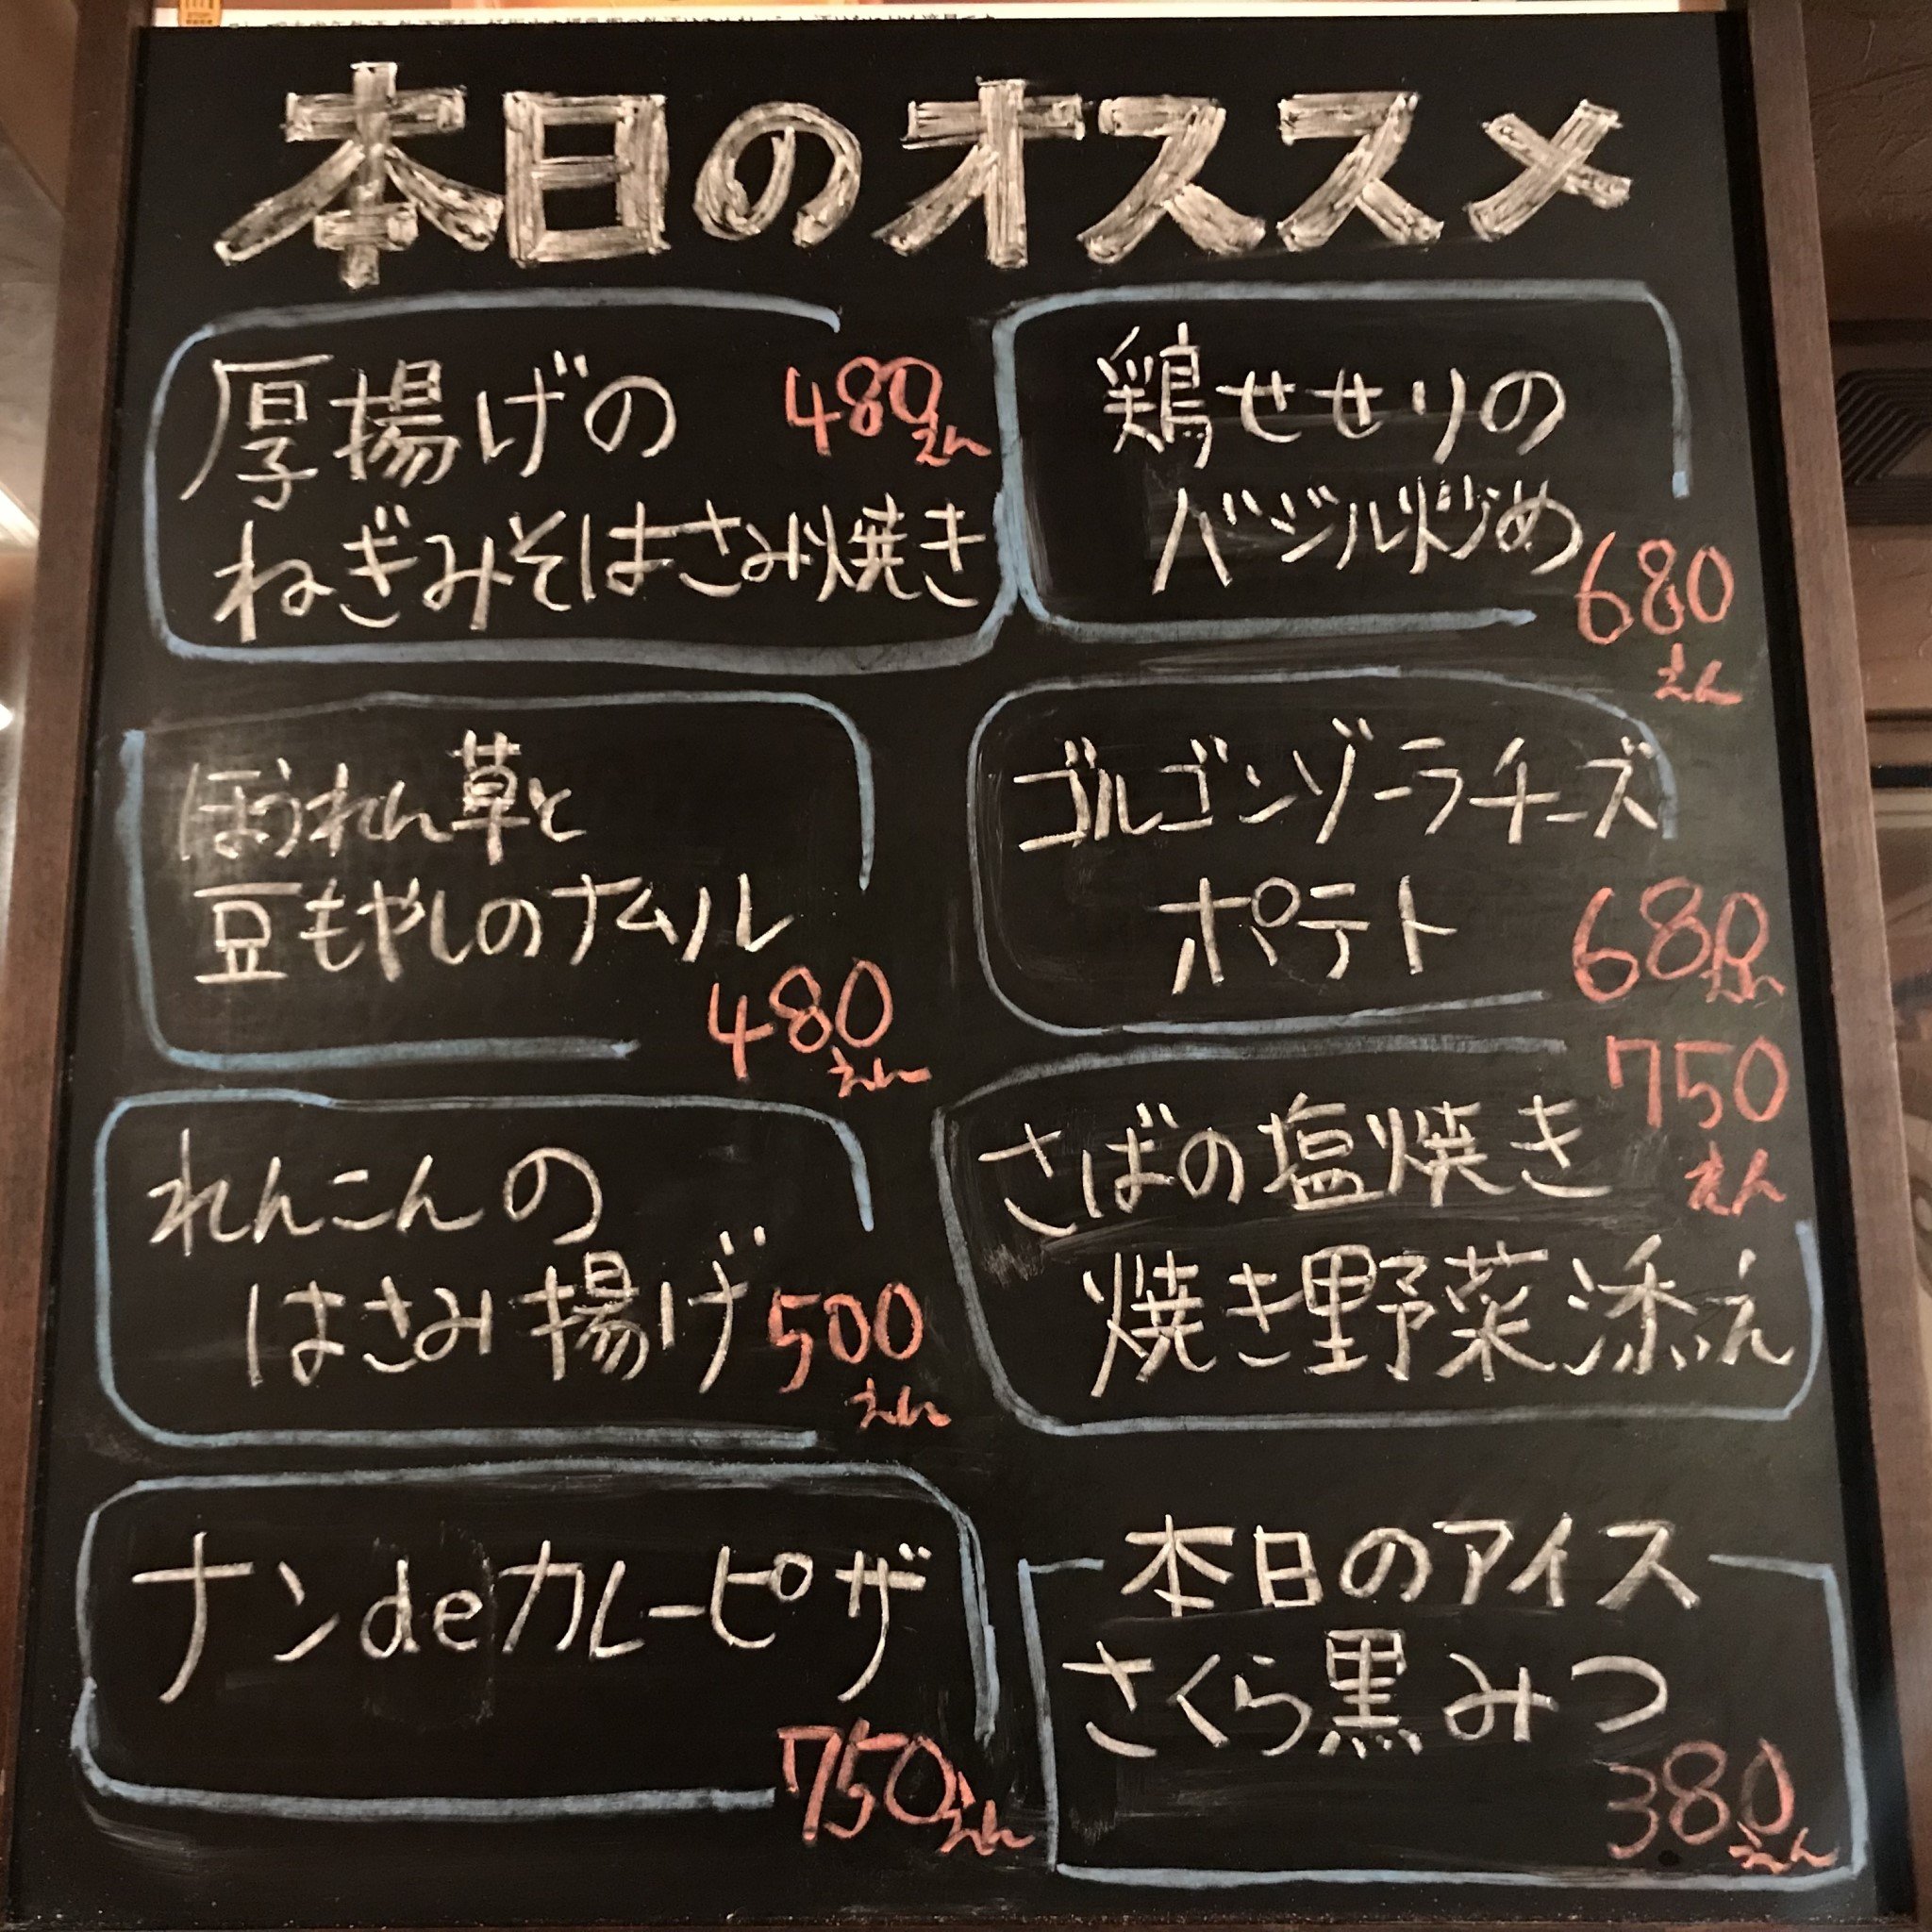 本日のオススメ
厚揚げの
ねぎみそはさみ焼き
480えん
鶏せせりの
バジル炒め
680
えん
ほうれん草と
豆もやしのナムル
480
えん
ゴルゴンゾーラチーズ
ポテト
680えん
れんこんの
はさみ揚げ
500
えん
750
えん
さばの塩焼き
焼き野菜添え
ナンdeカレーピザ
750えん
本日のアイス
さくら黒みつ
380えん